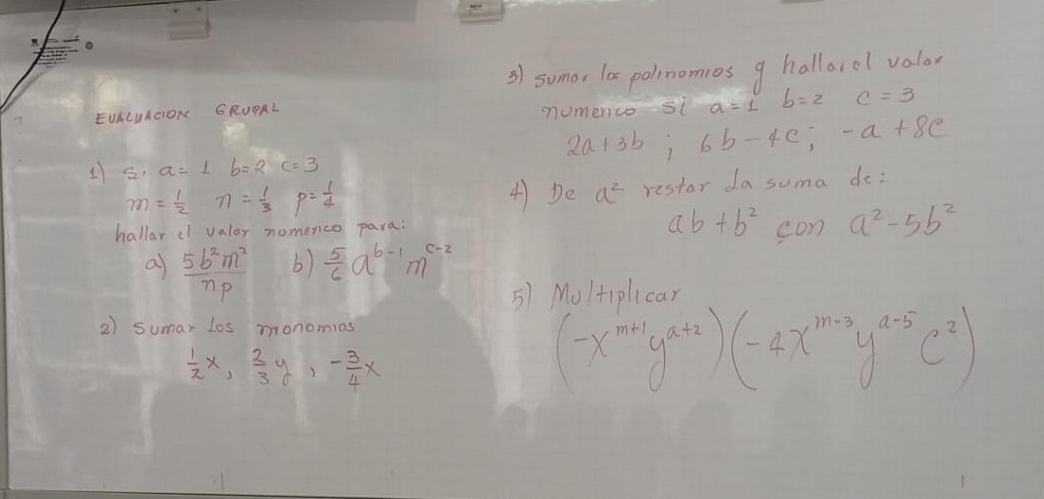 EVALUACION GRUPAL
1) Si a= 1 b=2 c=3
m = 1/2 n = 1/3 p= 1/4
hallar el valor numerico para:
a) 5b²m²/np b) 5/6 a^(b-1) m^(c-2)
2) Sumar Los monomios
1/2 x, 2/3 y, -3/4 x
3) Sumar los polinomios y hallar el valor
numerico si a=1 b=2 c=3
2a+3b ; 6b-4c; -a+8c
4) De a² restar La suma de:
ab+b² con a²-5b²
5) Multiplicar
(-x^(m+1) y^(a+2)) (-4x^(m-3) y^(a-5) c²)